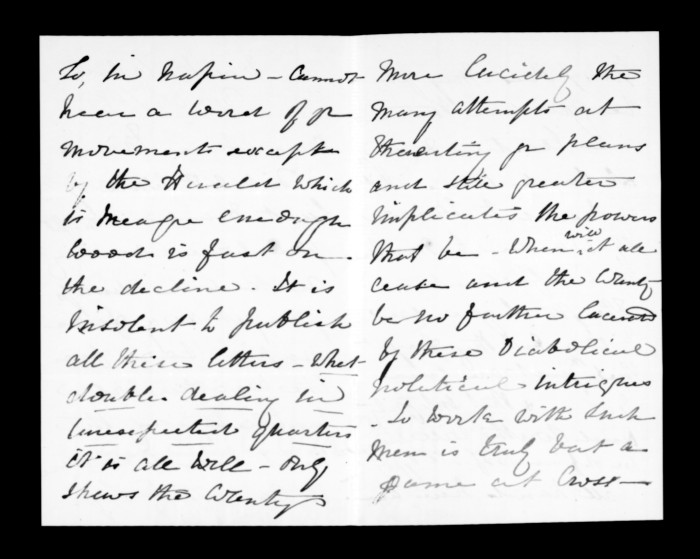 So, in Napier - cannot
hear a word of yr
movements except
by the Herald which
is meagre enough
Wood is fast on
the decline. It is
insolent to publish
all these letters - What
double dealing in
unexpected quarters
it is all well - only
shews the County
more lucidly the
many attempts at
thwarting yr plans
and still greater
implicates the powers
that be - When will it all
cease and the County
be no further
by these Diabolical
political intrigues
- To work with such
men is truly but a
game at Cross -